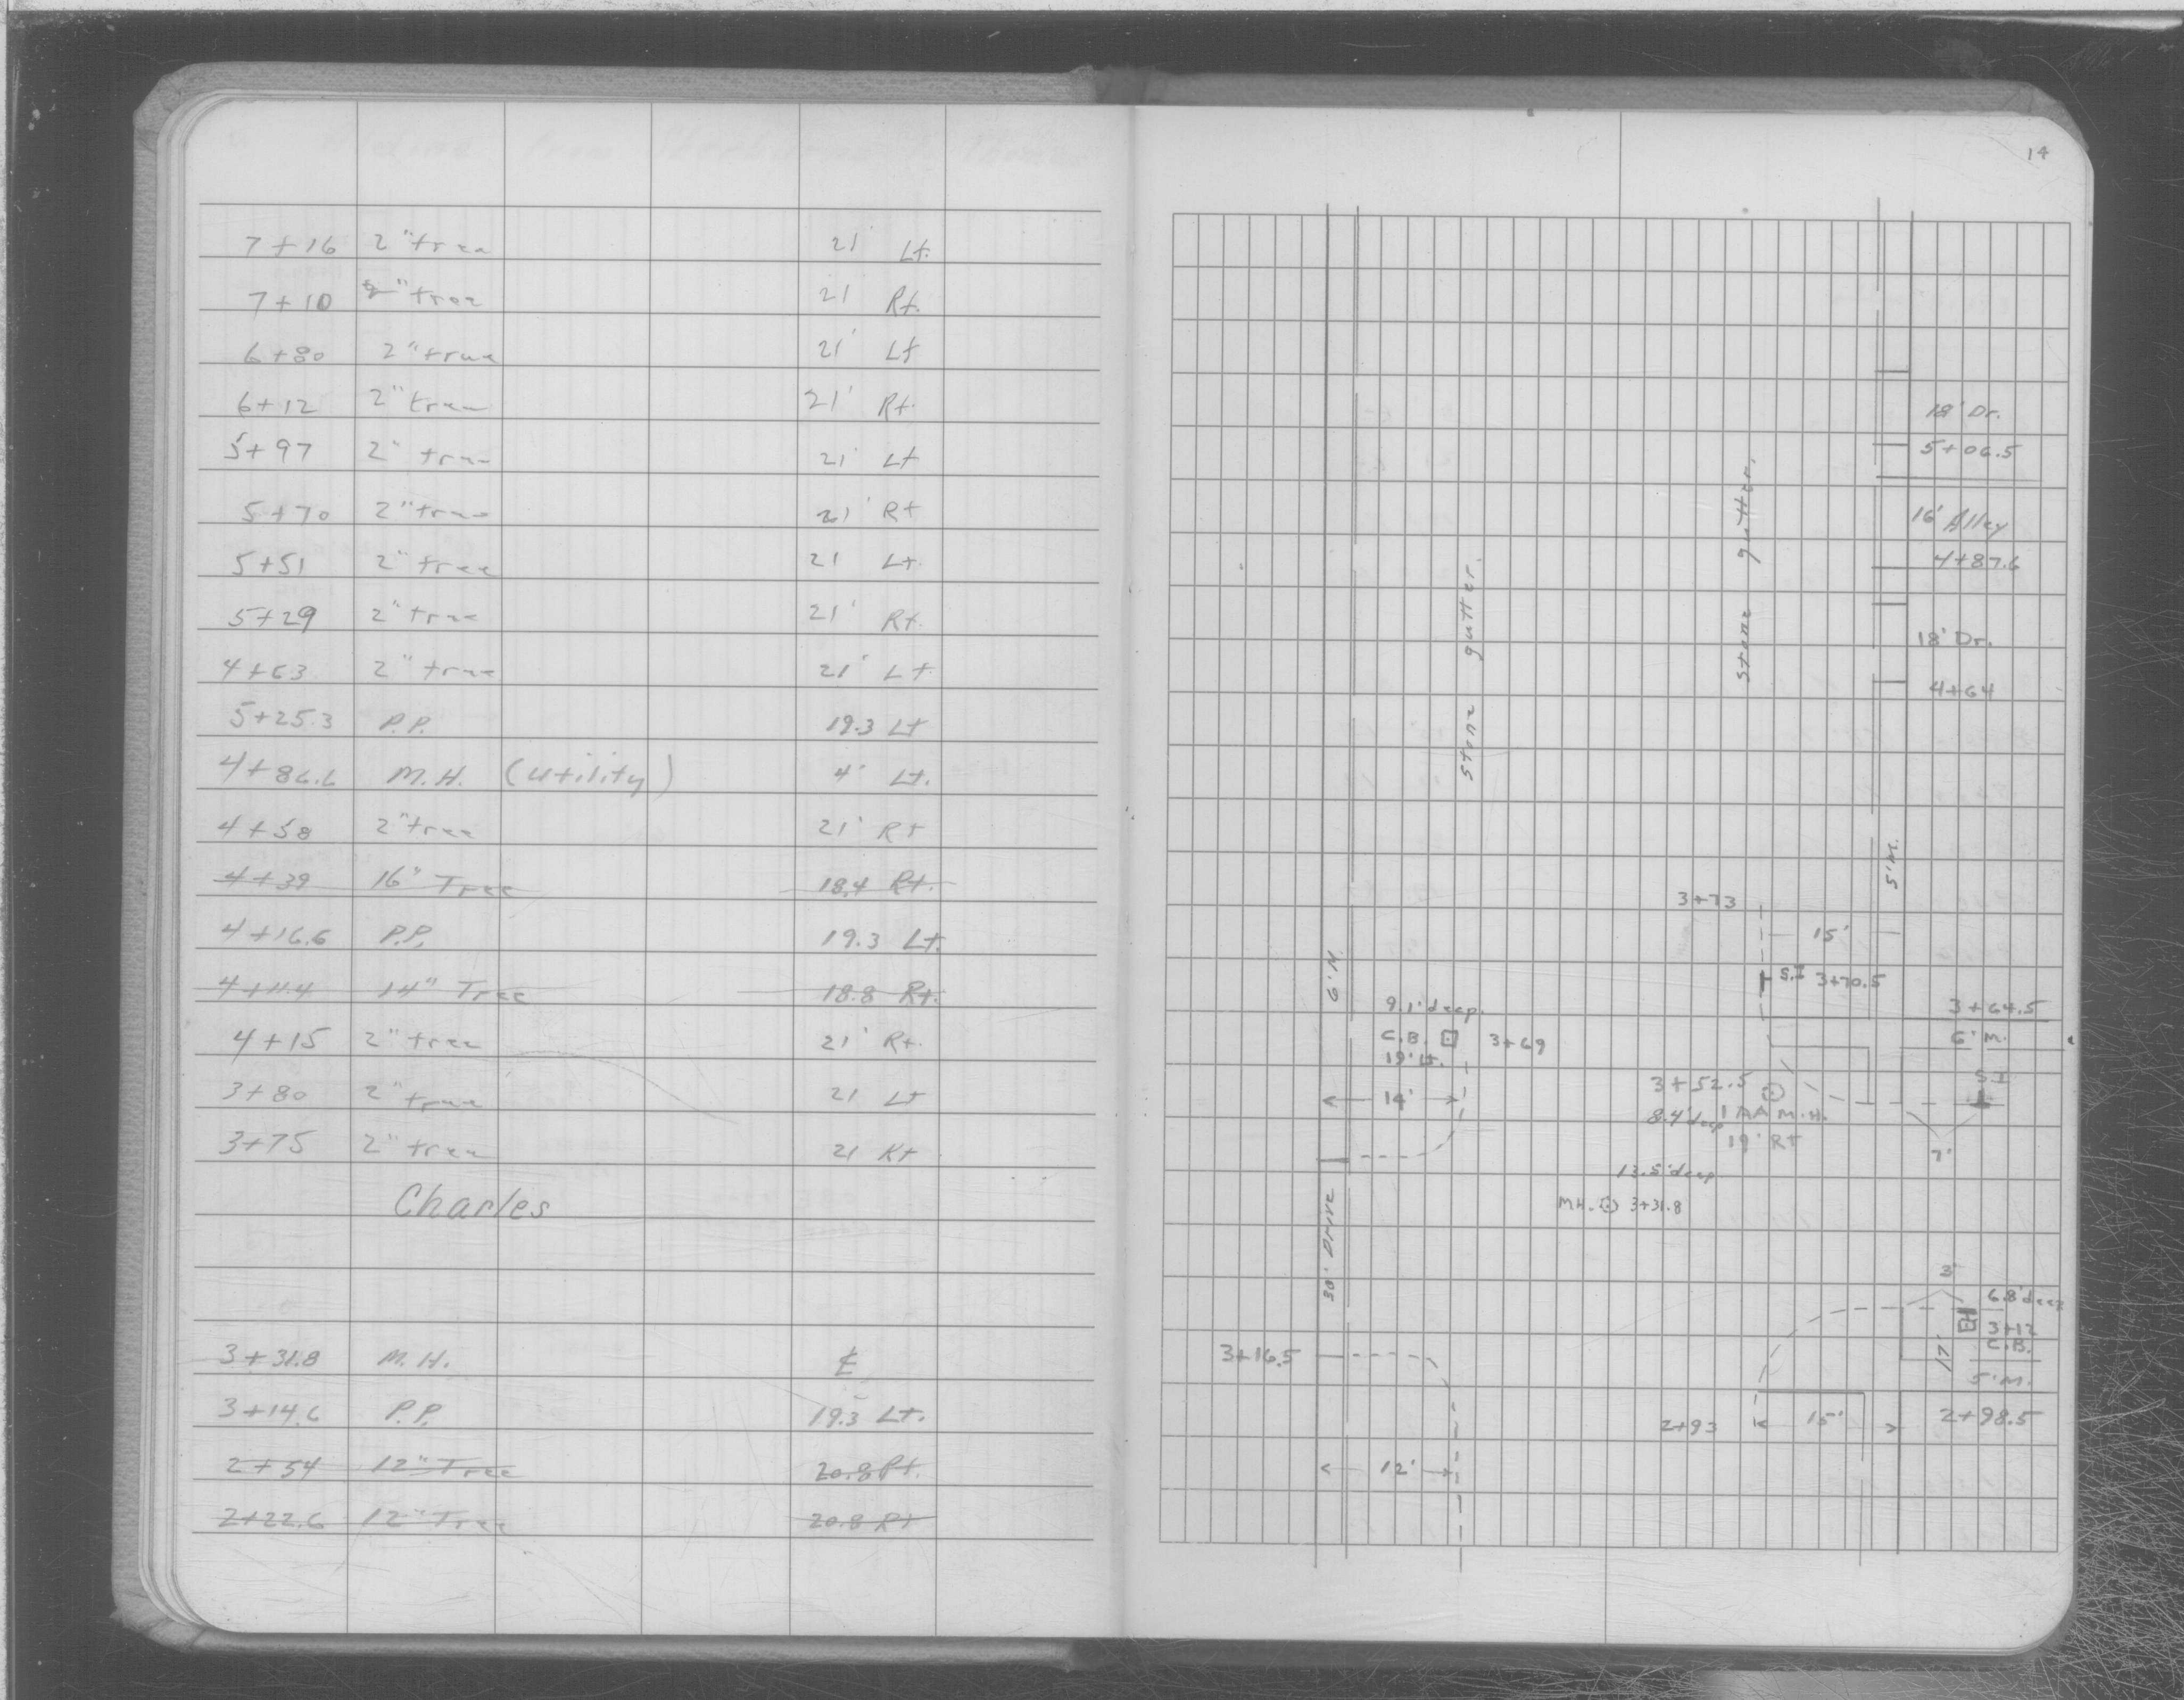 7+16 2" tree 21' Lt.
7+10 2" tree 21 Rt.
6+80 2" tree 21' Lt
6+12 2" tree 21' Rt.
5+97 2" tree 21' Lt
5+70 2" tree 21' Rt
5+51 2" tree 21 Lt.
5+29 2" tree 21' Rt.
4+63 2" tree 21' Lt.
5+25.3 P.P. 19.3 Lt
4+86.6 M.H. (Utility) 4' Lt.
4+58 2" tree 21' Rt
4+39 16" Tree 18.4 Rt.
4+16.6 P.P. 19.3 Lt.
4+11.4 14" Tree 18.8 Rt.
4+15 2" tree 21' Rt.
3+80 2" tree 21 Lt
3+75 2" tree 21 Rt
Charles
3+31.8 M.H. ℄
3+14.6 P.P. 19.3 Lt.
2+54 12" Tree 20.8 Rt.
2+22.6 12" Tree 20.8 Rt
14
18' Dr.
5+06.5
16' Alley
4+87.6
18' Dr.
4+64
stone gutter.
stone gutter.
5'M.
3+73
15'
S.I 3+70.5
6'M.
9.1' deep.
C.B. 3+69
19' Lt.
14'
3+64.5
6'M.
S.I
7'
3+52.5
8.4' deep
M.H.
19' Rt
13.5' deep
M.H. 3+31.8
30' Drive
3'
6.8' deep
3+12
C.B.
17'
5'M.
3+16.5
2+93
15'
2+98.5
12'